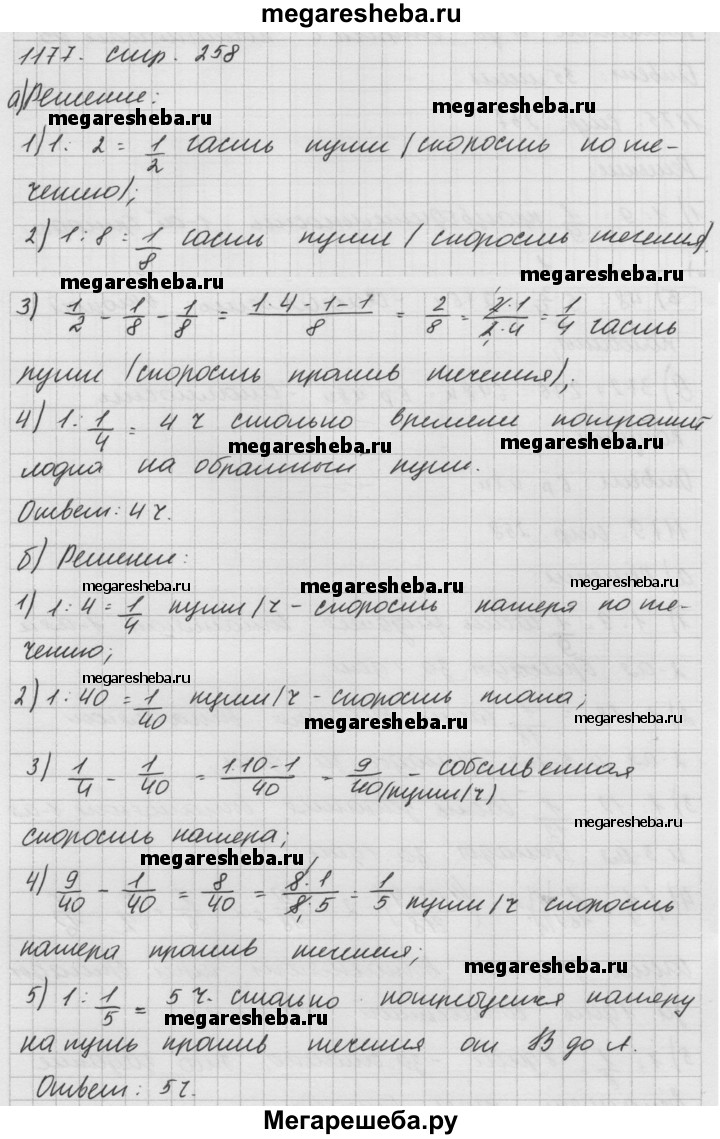 megaresheba.ru
1177. стр. 258
а) Решение:
megaresheba.ru megaresheba.ru
1) 1 : 2 = 1/2 часть пути (скорость по те-
чению);
2) 1 : 8 = 1/8 часть пути (скорость течения).
megaresheba.ru megaresheba.ru
3) 1/2 - 1/8 - 1/8 = (1·4-1-1)/8 = 2/8 = (2·1)/(2·4) = 1/4 часть
пути (скорость против течения);
4) 1 : 1/4 = 4 ч столько времени потратит
megaresheba.ru megaresheba.ru
лодка на обратный пути.
Ответ: 4 ч.
б) Решение:
megaresheba.ru megaresheba.ru megaresheba.ru
1) 1 : 4 = 1/4 пути/ч - скорость катера по те-
чению;
megaresheba.ru
2) 1 : 40 = 1/40 пути/ч - скорость плота;
megaresheba.ru megaresheba.ru
3) 1/4 - 1/40 = (1·10-1)/40 = 9/40 (пути/ч) - собственная
скорость катера;
megaresheba.ru
megaresheba.ru
4) 9/40 - 1/40 = 8/40 = (8·1)/(8·5) = 1/5 пути/ч скорость
катера против течения;
megaresheba.ru
5) 1 : 1/5 = 5 ч. столько потребуется катеру
megaresheba.ru
на путь против течения от В до А.
Ответ: 5 ч.
Мегарешеба.ру